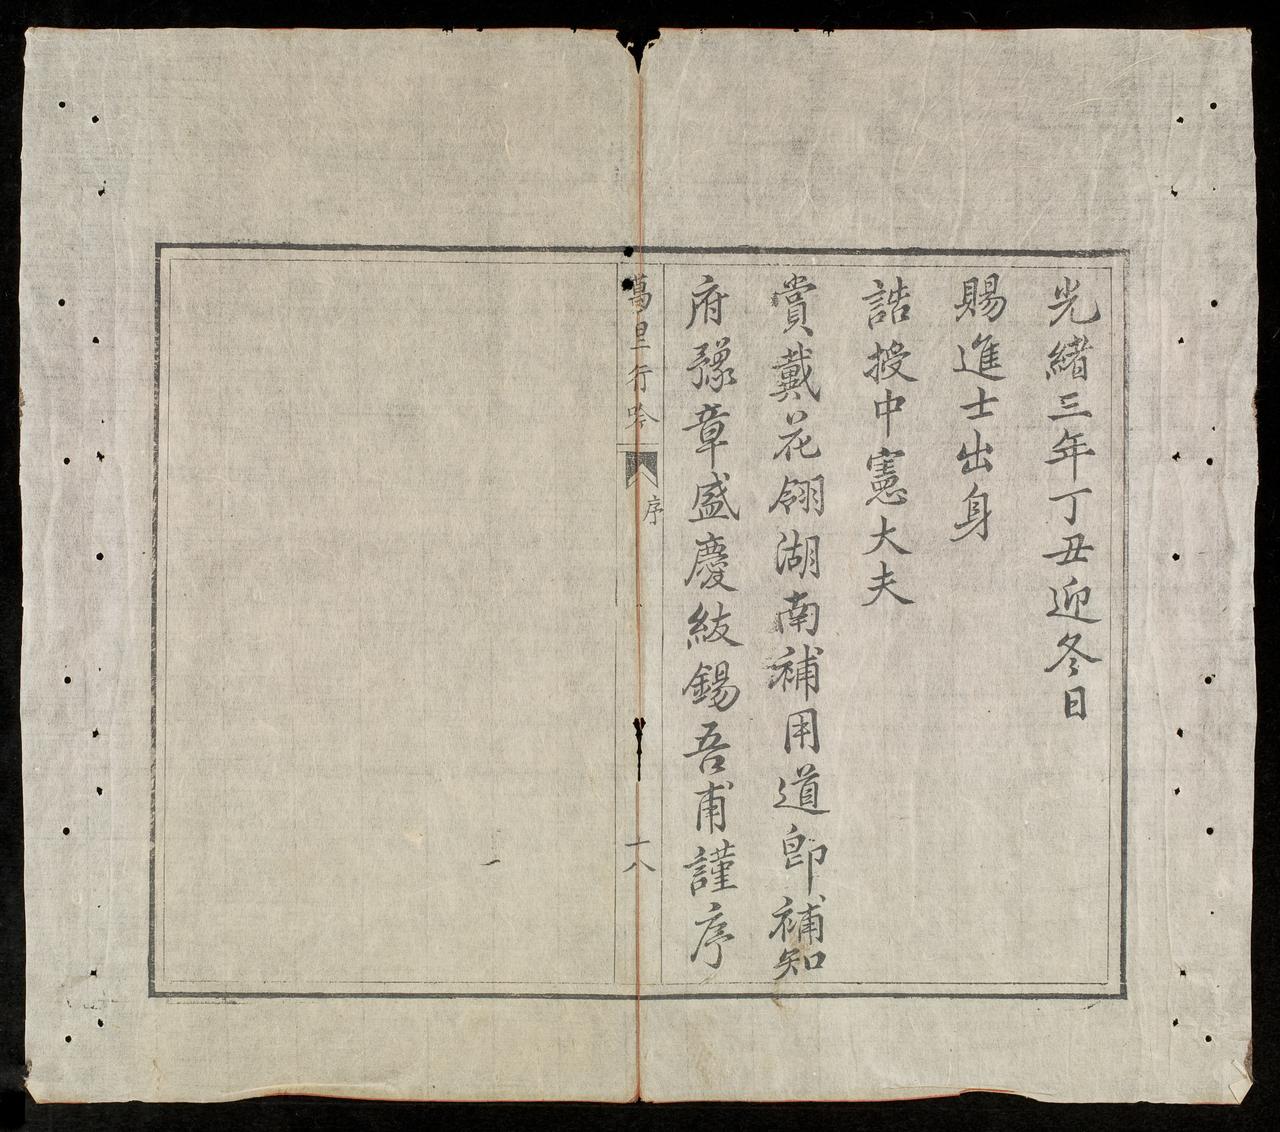 光緒三年丁丑迎冬日
賜進士出身
誥授中憲大夫
賞戴花翎湖南補用道即補知
府豫章盛慶紱錫吾甫謹序
萬里行吟
序
十八